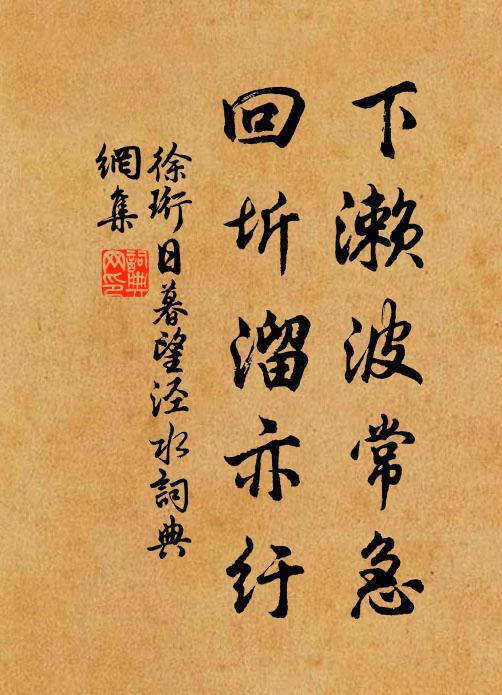 下濑波常急
回圻溜亦纡
徐珩日暮望泾水詞典
網集
詞典
网印